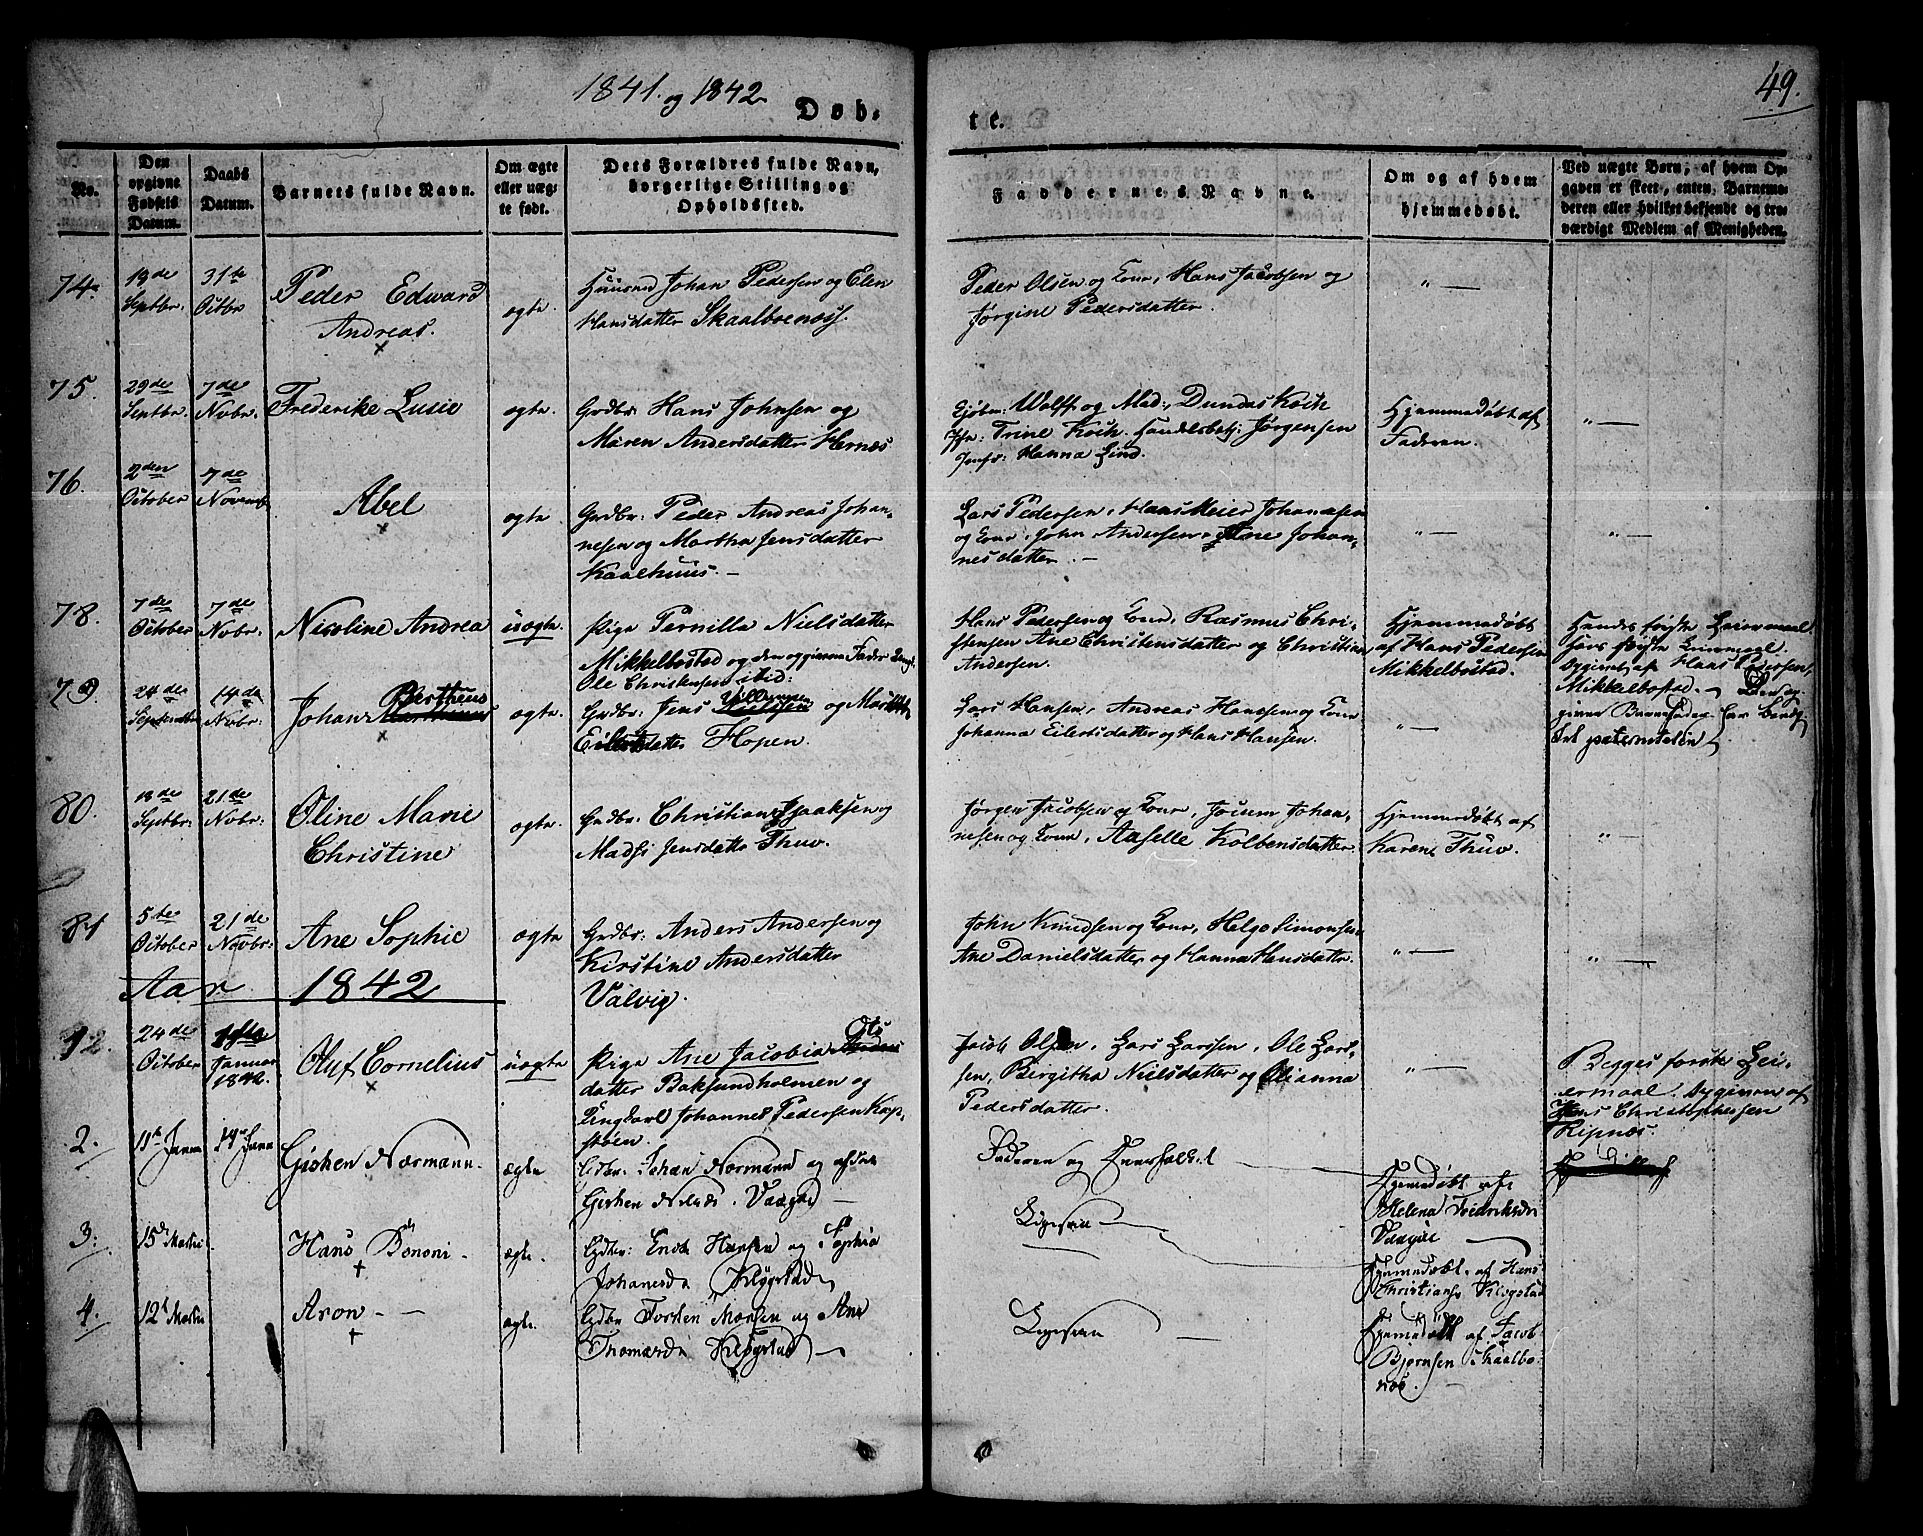 1841. og 1842
Døb-
te.
49.
No.
Den opgivne Fødsels Datum.
Daabs Datum.
Barnets fulde Navn.
Om ægte eller uægte født.
Dets Forældres fulde Navn, borgerlige Stilling og Opholdssted.
Faddernes Navne.
Om og af hvem hjemmedøbt.
Ved uægte Børn, af hvem Opgaven er skeet, enten, Barnemoderen eller hvilket bekjendt og troværdigt Medlem af Menigheden.
74.
19de Septbr.
31te Octbr
Peder Edward
Andreas.
ægte.
Huusmd Johan Pedersen og Elen
Hansdatter Skaalboenæss.
Peder Olsen og Kone, Hans Jacobsen og
Jørgine Pedersdatter.
" —
75.
29de Septbr.
7de Novbr.
Frederike Lusie
ægte.
Grdbr: Hans Johnsen og
Maren Andersdatter Hernæs
Wolff og Mad: Dundas Koch
Jfr: Trine Koch. Handelsbetj: Jørgensen
Jomfr: Hanna Lind.
Hjemmedøbt af
Faderen.
" —
76.
2den October
7de Novemb
Abel
ægte.
Grdbr: Peder Andreas Johan-
nesen og Martha Jensdatter
Kaalhuus. —
Lars Pedersen, Hans Meier Johannesen
og Kone, John Andersen, Ane Johan-
nesdatter. —
" —
" —
78.
7de October
7de Novbr.
Nicoline Andrea
uægte.
Pige Pernilla Nielsdatter
Mikkelbostad og den opgivne Fader Ungk.
Ole Christensen ibid:
Hans Pedersen og Kone, Rasmus Chri-
stensen Ane Christensdatter og Christian
Andersen.
Hjemmedøbt
af Hans Pedersen
Mikkelbostad.
Hendes første Leiermaal
Hans første Leiermaal.
Opgivet af Hans Pedersen,
Mikkelbostad. —
79
24de Septembr
14de Novbr.
Bertheus
Johan
ægte
Grdbr: Jens Villumsen og
Eilertsdatter Hopen.
Lars Hansen, Andreas Hansen og Kone
Johanna Eilertsdatter og Hans Hansen.
" —
80.
18de Septbr.
21de Novbr:
Oline Marie
Christine
ægte.
Grdbr. Christian Isaaksen og
Madsi Jensdatter Thuv.
Jørgen Jacobsen og Kone, Jocum Johan-
nesen og Kone, Aaselle Kolbensdatter.
Hjemmedøbt af
Karen Thuv.
" —
81
5te October
21de Novbr:
Ane Sophie
ægte
Grdbr: Anders Andersen og
Kirstine Andersdatter
Valvig.
John Knudsen og Kone, Helge Simonsen
Ane Danielsdatter og Hanna Hansdatter.
" —
" —
Aar 1842
12.
24de October
Januar 1842.
Oluf Cornelius
uægte
Pige Ane Jacobia Ols
datter Baksundholmen og
Ungkarl Johannes Pedersen Kop-
støen.
Jacob Olsen, Lars Larssen, Ole Lars-
sen, Bergitha Nielsdatter og Olianna
Pedersdatter.
" —
Begges første Lei-
ermaal. Opgiven af
Hans Christophersen
Ripnæs.
2.
Gjerken Normann.
ægte
Gdbr. Johan Normand og
Vaagøe —
Faderen og
Hjemmedøbt af
Helena Fredriksdr
Vaagøe
3.
15de Martii
Hans Bononi.
ægte.
Gdbr: Enok Hansen og Sophia
Johanesdr Klogstad
Ligesaa
Hjemmedøbt. af Hans
Christiansen Klogstad
4.
12t Martii
Aron - -
ægte.
Gdbr Torsten Monsen og Ane
Thomasdr Klogstad —
Ligesaa —
Hjemmedøbt af Jacob
Bjørnsen Skaalbo-
næs.